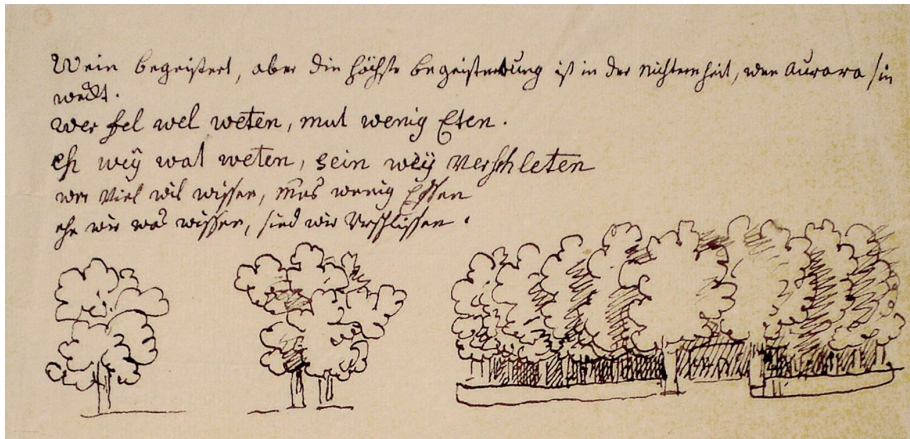 Wein begeistert, aber die höchste begeisterung ist in der Nüchternheit, wen Aurora sie
wekt.
wer fel wel weten, mut wenig Eten.
eh wey wat weten, sein wey verschleten
wer viel wil wissen, mus wenig Essen
ehe wir was wissen, sind wir verschlissen.